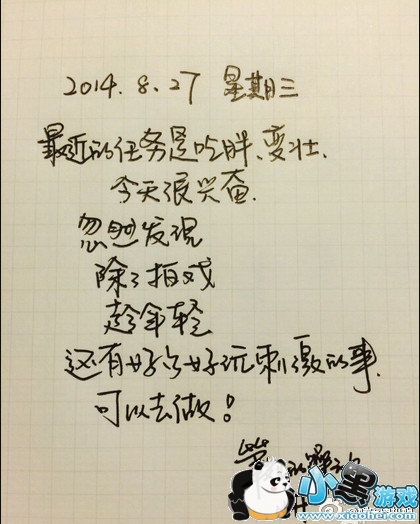 2014.8.27 星期三
最近的任务是吃胖、变壮.
今天很兴奋.
忽然发现
除了拍戏
趁年轻
还有好多好玩刺激的事.
可以去做!
小黑游戏
www.xiaohei.com